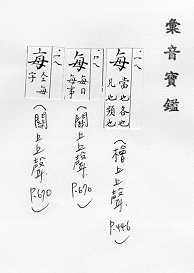 彙音寶鑑
一八
每 當也各也
凡也頻也
(檜上上聲
P.446)
一八
每 每日
每事
(關上上聲
P.670)
一八
每 仝每
字
(關上上聲
P.670)